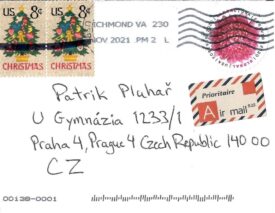 US 8¢ US 8¢
CHRISTMAS CHRISTMAS
RICHMOND VA 230
NOV 2021 PM 2 L
Prioritaire
Air mail
Patrik Pluhař
U Gymnázia 1233/1
Praha 4, Prague 4 Czech Republic 140 00
CZ
00138-0001